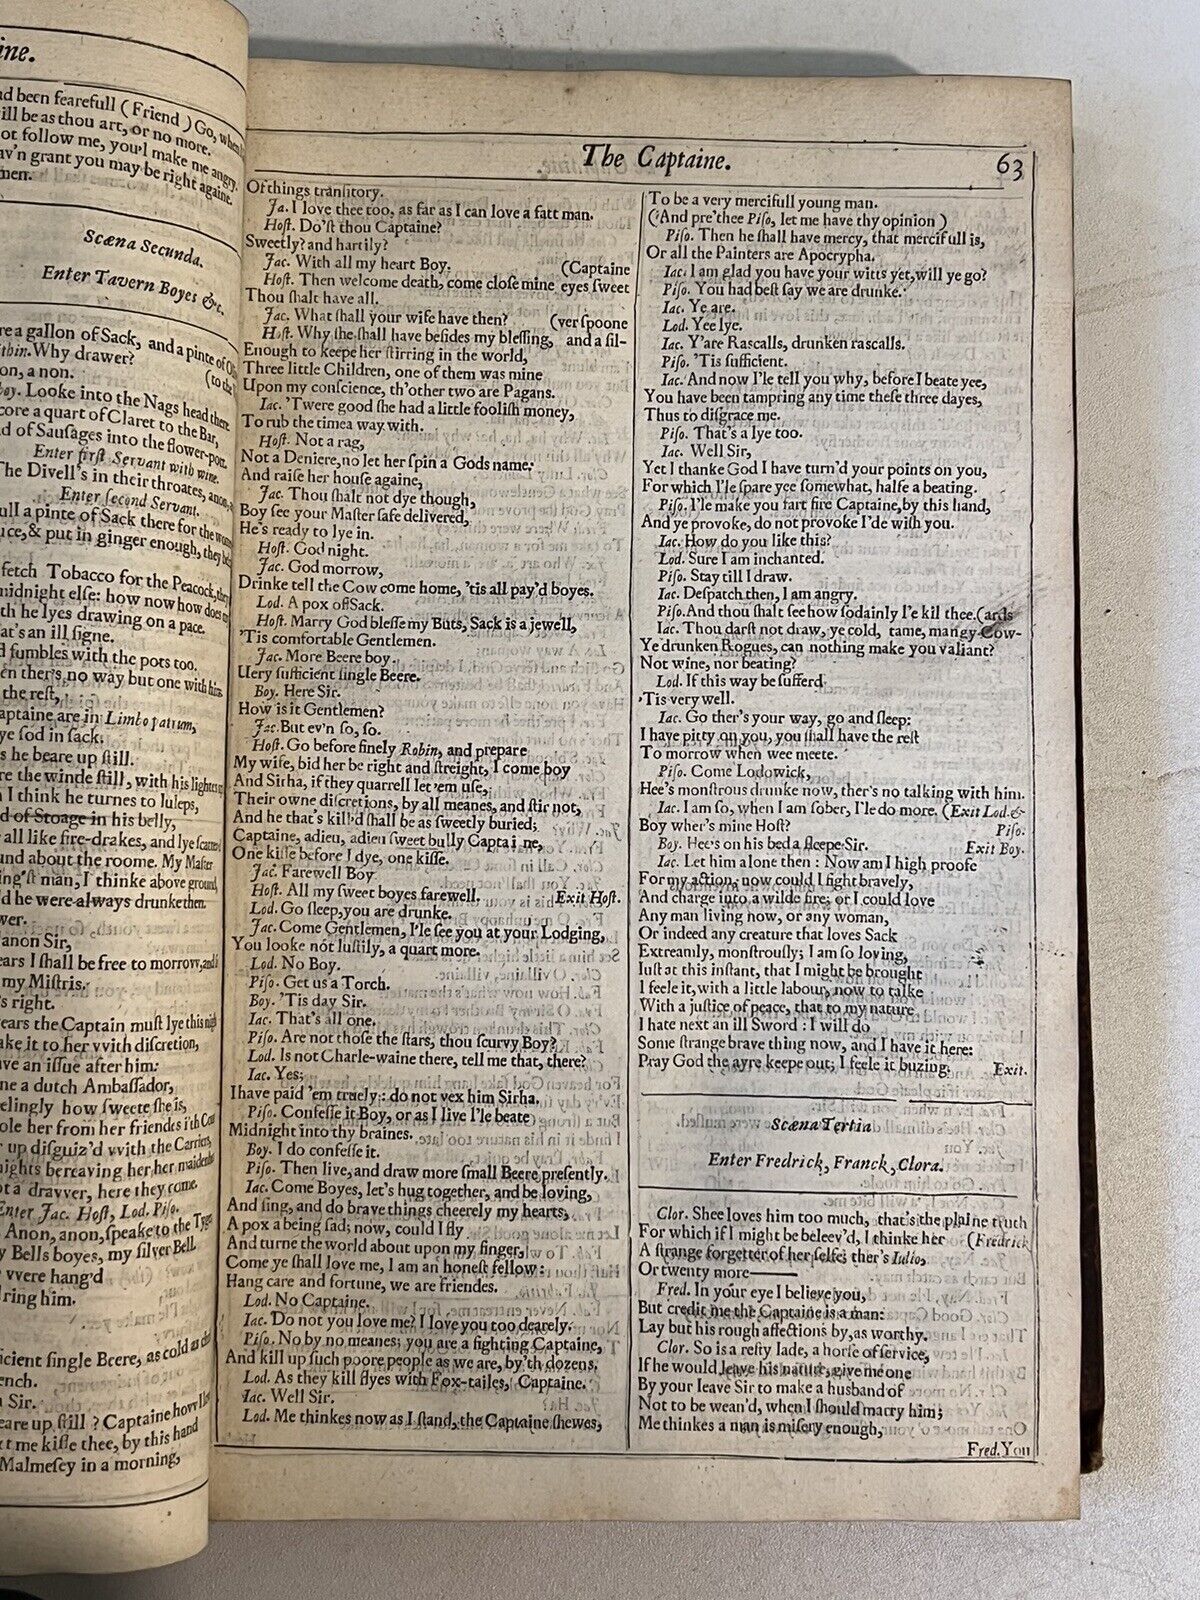 ine.
d been fearefull (Friend) Go, when
ill be as thou art, or no more.
ot follow me, you'l make me angry.
av'n grant you may be right againe.
men.
Scæna Secunda.
Enter Tavern Boyes &c.
re a gallon of Sack, and a pinte of
ithin. Why drawer? (to the
on, a non.
oy. Looke into the Nags head there
core a quart of Claret to the Bar,
d of Sausages into the flower-pott.
Enter first Servant with wine.
The Divell's in their throates, anon,
Enter second Servant.
ull a pinte of Sack there for the
uce, & put in ginger enough, they
fetch Tobacco for the Peacock,
midnight else: how now how does
th he lyes drawing on a pace.
at's an ill signe.
d fumbles with the pots too.
en ther's no way but one with him.
the rest,
aptaine are in Limbo patrum,
ye sod in sack.
s he beare up still.
re the winde still, with his
I think he turnes to Iuleps,
d of Stoage in his belly,
all like fire-drakes, and lye
und about the roome. My Master
ing'st man, I thinke above ground,
d he were always drunke then.
wer.
anon Sir,
ears I shall be free to morrow, and
my Mistris.
's right.
ears the Captain must lye this night
ake it to her with discretion,
ve an issue after him:
ne a dutch Ambassador,
elingly how sweete she is,
ole her from her friendes
r up disguiz'd with the Carriers,
nights bereaving her her
ot a dravver, here they come.
Enter Jac. Host, Lod. Piso.
Anon, anon, speake to the Tyger
y Bells boyes, my silver Bell.
vvere hang'd
ring him.
icient single Beere, as cold as
ench.
Sir.
eare up still? Captaine how
t me kisse thee, by this hand
Malmesey in a morning,
The Captaine. 63
Of things transitory.
Ja. I love thee too, as far as I can love a fatt man.
Host. Do'st thou Captaine?
Sweetly? and hartily?
Jac. With all my heart Boy. (Captaine
Host. Then welcome death, come close mine eyes sweet
Thou shalt have all.
Jac. What shall your wife have then? (ver spoone
Host. Why she shall have besides my blessing, and a sil-
Enough to keepe her stirring in the world,
Three little Children, one of them was mine
Upon my conscience, th'other two are Pagans.
Iac. 'Twere good she had a little foolish money,
To rub the time a way with.
Host. Not a rag,
Not a Deniere, no let her spin a Gods name,
And raise her house againe,
Jac. Thou shalt not dye though,
Boy see your Master safe delivered,
He's ready to lye in.
Host. God night.
Jac. God morrow,
Drinke tell the Cow come home, 'tis all pay'd boyes.
Lod. A pox off Sack.
Host. Marry God blesse my Buts, Sack is a jewell,
'Tis comfortable Gentlemen.
Jac. More Beere boy.
Uery sufficient single Beere.
Boy. Here Sir.
How is it Gentlemen?
Jac. But ev'n so, so.
Host. Go before finely Robin, and prepare
My wife, bid her be right and streight, I come boy
And Sirha, if they quarrell let 'em use,
Their owne discretions, by all meanes, and stir not,
And he that's kill'd shall be as sweetly buried;
Captaine, adieu, adieu sweet bully Captaine,
One kisse before I dye, one kisse.
Jac. Farewell Boy
Host. All my sweet boyes farewell. Exit Host.
Lod. Go sleep, you are drunke.
Jac. Come Gentlemen, I'le see you at your Lodging,
You looke not lustily, a quart more.
Lod. No Boy.
Piso. Get us a Torch.
Boy. 'Tis day Sir.
Iac. That's all one.
Piso. Are not those the stars, thou scurvy Boy?
Lod. Is not Charle-waine there, tell me that, there?
Iac. Yes;
I have paid 'em truely: do not vex him Sirha.
Piso. Confesse it Boy, or as I live I'le beate
Midnight into thy braines.
Boy. I do confesse it.
Piso. Then live, and draw more small Beere presently.
Iac. Come Boyes, let's hug together, and be loving,
And sing, and do brave things cheerely my hearts,
A pox a being sad; now, could I fly
And turne the world about upon my finger,
Come ye shall love me, I am an honest fellow:
Hang care and fortune, we are friendes.
Lod. No Captaine.
Iac. Do not you love me? I love you too dearely.
Piso. No by no meanes; you are a fighting Captaine,
And kill up such poore people as we are, by'th dozens.
Lod. As they kill flyes with Fox-tailes, Captaine.
Iac. Well Sir.
Lod. Me thinkes now as I stand, the Captaine shewes,
To be a very mercifull young man.
(And pre'thee Piso, let me have thy opinion)
Piso. Then he shall have mercy, that mercifull is,
Or all the Painters are Apocrypha.
Iac. I am glad you have your witts yet, will ye go?
Piso. You had best say we are drunke.
Iac. Ye are.
Lod. Yee lye.
Iac. Y'are Rascalls, drunken rascalls.
Piso. 'Tis sufficient.
Iac. And now I'le tell you why, before I beate yee,
You have been tampring any time these three dayes,
Thus to disgrace me.
Piso. That's a lye too.
Iac. Well Sir,
Yet I thanke God I have turn'd your points on you,
For which I'le spare yee somewhat, halfe a beating.
Piso. I'le make you fart fire Captaine, by this hand,
And ye provoke, do not provoke I'de wish you.
Iac. How do you like this?
Lod. Sure I am inchanted.
Piso. Stay till I draw.
Iac. Despatch then, I am angry.
Piso. And thou shalt see how sodainly I'e kil thee. (ards
Iac. Thou darst not draw, ye cold, tame, mangy Cow-
Ye drunken Rogues, can nothing make you valiant?
Not wine, nor beating?
Lod. If this way be sufferd
'Tis very well.
Iac. Go ther's your way, go and sleep:
I have pitty on you, you shall have the rest
To morrow when wee meete.
Piso. Come Lodowick,
Hee's monstrous drunke now, ther's no talking with him.
Iac. I am so, when I am sober, I'le do more. (Exit Lod. &
Boy wher's mine Host? Piso.
Boy. Hee's on his bed a sleepe Sir. Exit Boy.
Iac. Let him alone then: Now am I high proofe
For my action, now could I fight bravely,
And charge into a wilde fire; or I could love
Any man living now, or any woman,
Or indeed any creature that loves Sack
Extreamly, monstrously; I am so loving,
Iust at this instant, that I might be brought
I feele it, with a little labour, now to talke
With a justice of peace, that to my nature
I hate next an ill Sword: I will do
Some strange brave thing now, and I have it here:
Pray God the ayre keepe out; I feele it buzing. Exit.
Scæna Tertia
Enter Fredrick, Franck, Clora.
Clor. Shee loves him too much, that's the plaine truth
For which if I might be beleev'd, I thinke her (Fredrick
A strange forgetter of her selfe; ther's Iulio,
Or twenty more——
Fred. In your eye I believe you,
But credit me the Captaine is a man:
Lay but his rough affections by, as worthy.
Clor. So is a resty Iade, a horse of service,
If he would leave his nature, give me one
By your leave Sir to make a husband of
Not to be wean'd, when I should marry him;
Me thinkes a man is misery enough,
Fred. You